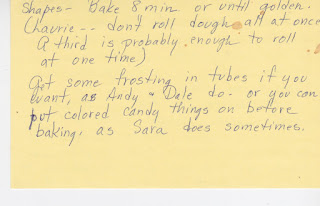 Shapes- Bake 8 min or until golden.
(Laurie -- don't roll dough all at once
A third is probably enough to roll
at one time)
Get some frosting in tubes if you
want, as Andy & Dale do- or you can
put colored candy things on before
baking, as Sara does sometimes.